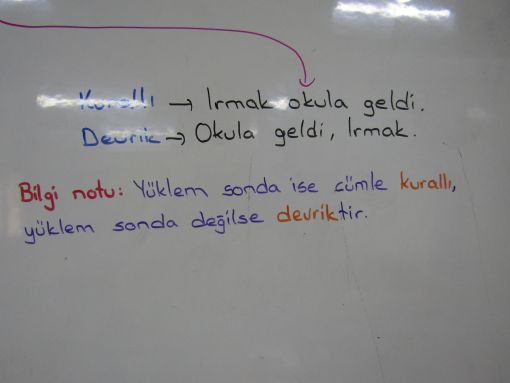 Kurallı → Irmak okula geldi.
Devrik → Okula geldi, Irmak.
Bilgi notu: Yüklem sonda ise cümle kurallı,
yüklem sonda değilse devriktir.